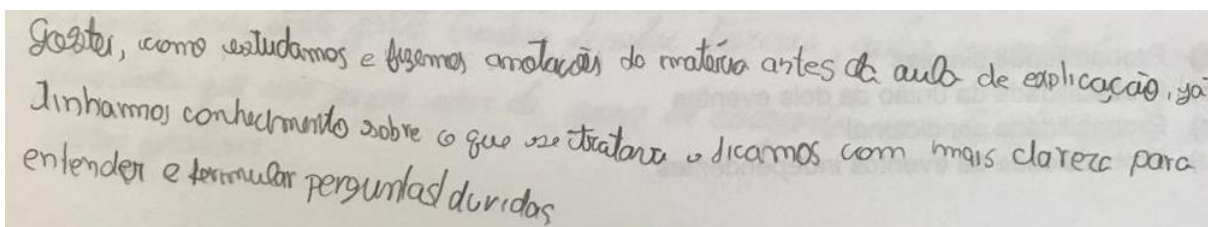 Gostei, como estudamos e fizemos anotações da matéria antes da aula de explicação, já
tinhamos conhecimento sobre o que se tratava e ficamos com mais clareza para
entender e formular perguntas/duvidas